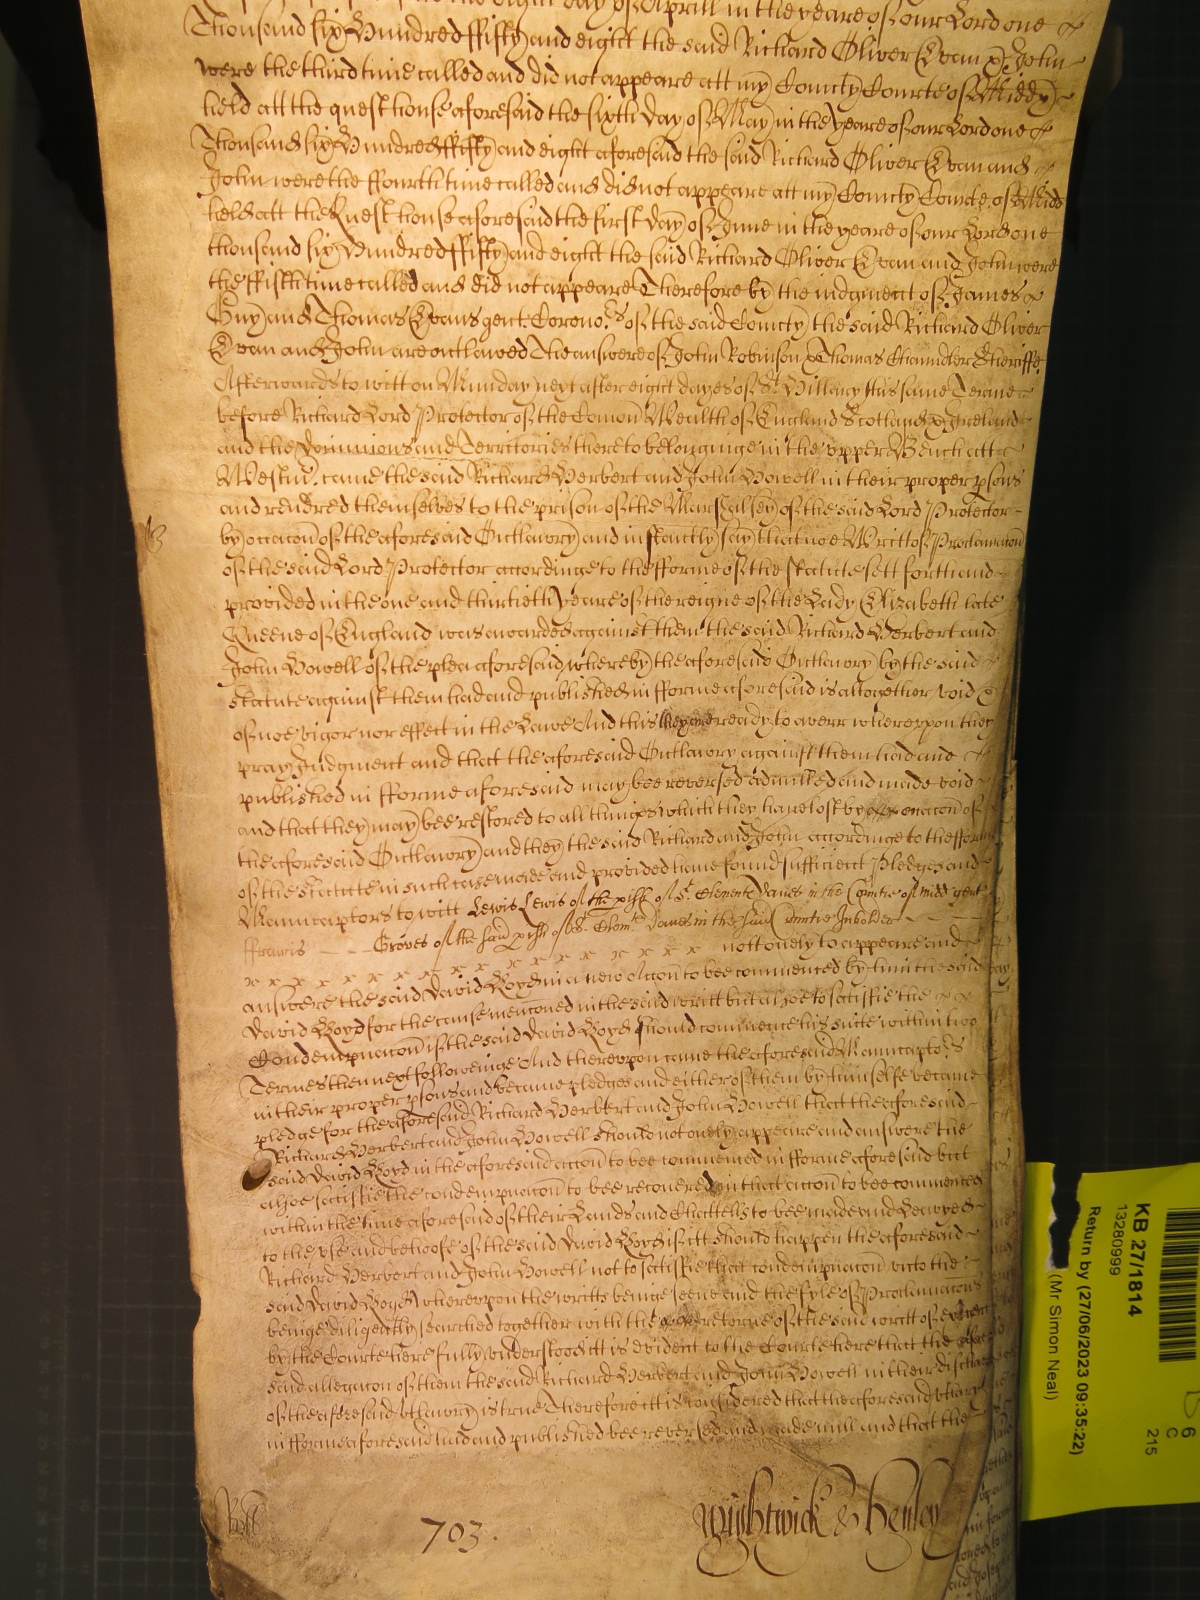 day of Aprill in the yeare of our Lord one
Thousand six Hundred ffifty and eight the said Richard Oliver Evan & John
were the third time called and did not appeare att my County Courte of Midd
held att the quest house aforesaid the sixth day of May in the yeare of our Lord one
Thousand six Hundred ffifty and eight aforesaid the said Richard Oliver Evan and
John were the ffourth time called and did not appeare att my County Courte of Midd
held att the Quest house aforesaid the first day of June in the yeare of our Lord one
thousand six Hundred ffifty and eight the said Richard Oliver Evan and John were
the ffifth time called and did not appeare Therefore by the iudgment of James
Guy and Thomas Evans gent. Corono.rs of the said County the said Richard Oliver
Evan and John are outlawed The answere of John Robinson & Thomas Chaundler Sheriffe
Afterwards to witt on Munday next after eight dayes of St Hillary this same Terme
before Richard Lord Protector of the Comon Wealth of England Scotland & Ireland
and the Dominions and Territories thereto belonginge in the vpper Bench att
Westm. came the said Richard Herbert and John Howell in their proper psons
and rendred themselves to the prison of the Marshalsey of the said Lord Protector
by occacon of the aforesaid Outlawry and instantly say that noe Writt of Proclamacon
of the said Lord Protector accordinge to the fforme of the statute sett forth and
provided in the one and thirtieth yeare of the reigne of the Lady Elizabeth late
Queene of England was awarded against them the said Richard Herbert and
John Howell of the plea aforesaid whereby the aforesaid Outlawry by the said
statute against them had and published in fforme aforesaid is altogether void &
of noe vigor nor effect in the Lawe And this they are ready to averr wherevpon they
pray Judgment and that the aforesaid Outlawry against them had and
published in fforme aforesaid may bee reversed adnulled and made void
and that they may bee restored to all thinges which they have lost by occacon of
the aforesaid Outlawry and they the said Richard and John accordinge to the fforme
of the Statute in such case made and provided have found sufficient Pledges and
Manucaptors to witt Lewis Lewis of the pish of St. Clement Danes in the Countie of Midd gent
ffrancis Groves of the said pish of St. Clemte Danes in the said Countie Inholder
x x x x x x x x x x x x x x x x not onely to appeare and
answere the said David Boyd in a new Accon to bee commenced by him the said
David Boyd for the cause menconed in the said writt but alsoe to satisfie the
Condempnacon if the said David Boyd should commence his suite within two
Termes then next followeinge And therevpon came the aforesaid Manucapto.rs
in their proper psons and became pledges and either of them by himselfe became
pledge for the aforesaid Richard Herbert and John Howell that the aforesaid
Richard Herbert and John Howell should not onely appeare and answere the
said David Boyd in the aforesaid accon to bee commenced in fforme aforesaid but
alsoe satisfie the condempnacon to bee recovered in that accon to bee commenced
within the time aforesaid of their Lands and Chattells to bee made and Leavyed
to the vse and behoofe of the said David Boyd if itt should happen the aforesaid
Richard Herbert and John Howell not to satisfie that condempnacon vnto the
said David Boyd wherevpon the writts beinge seene and the fyle of Proclamacons
beinge diligently searched together with the retorne of the said writt of
by the Courte here fully vnderstood itt is evident to the Courte here that the
said allegacon of them the said Richard Herbert and John Howell in their discharge
of the aforesaid vtlawry is true Therefore itt is considered that the aforesaid vtlawry
in fforme aforesaid had and published bee reversed and made null and that the
703.
Wightwick & Henley
KB 27/1814
13280999
Return by (27/06/2023 09:35:22)
(Mr Simon Neal)
6
C
215